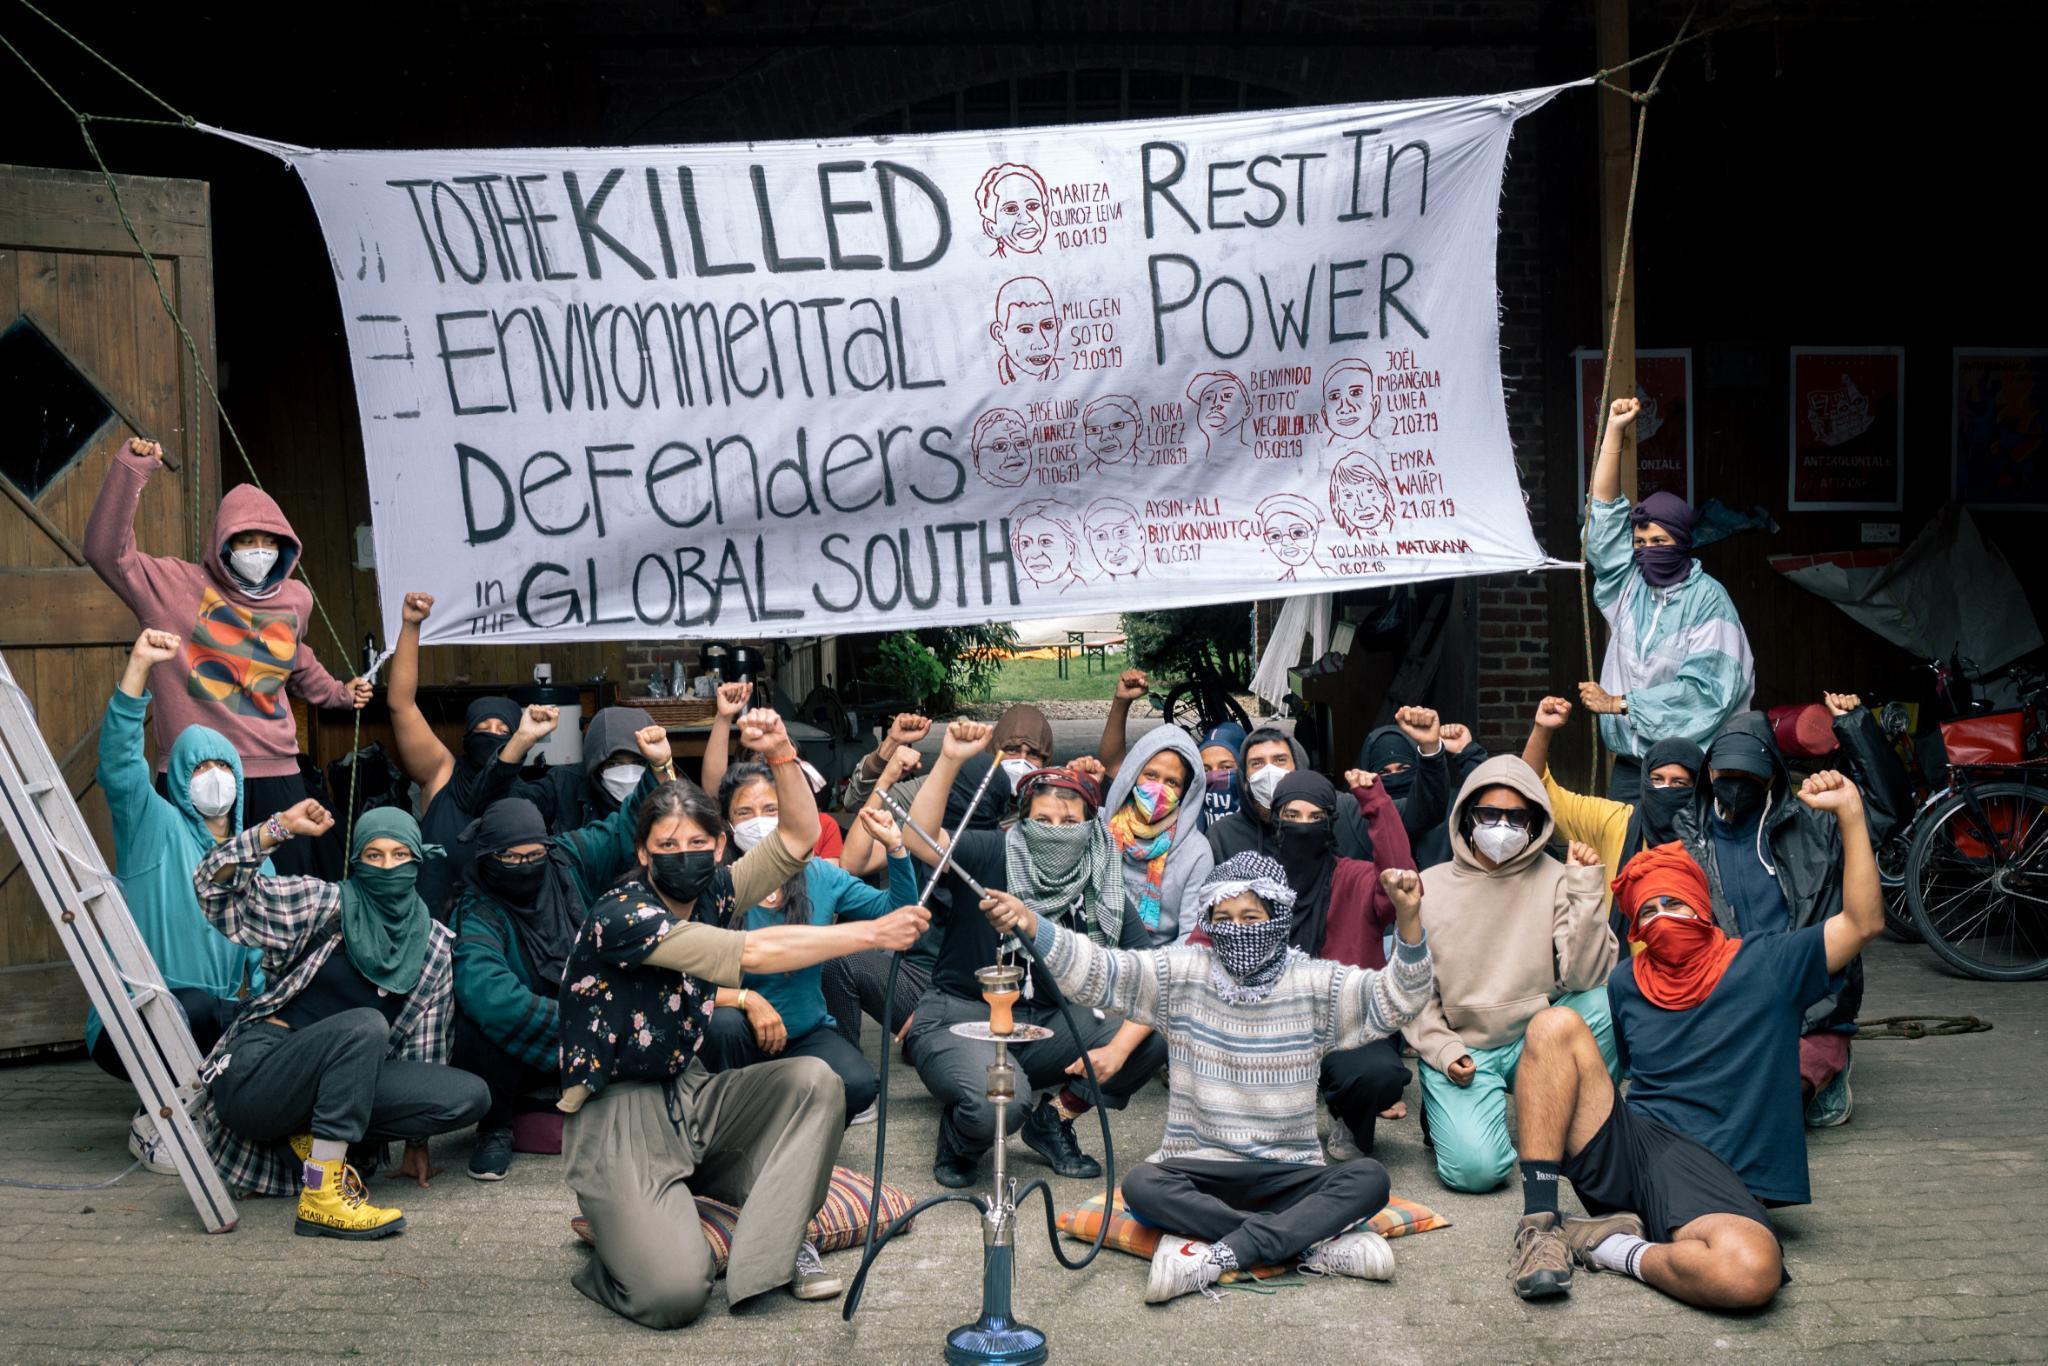 TO THE KILLED
ENVIRONMENTAL
DEFENDERS
in THE GLOBAL SOUTH
REST In
POWER
MARITZA
QUIROZ LEIVA
10.01.19
MILGEN
SOTO
29.09.19
JOSÉ LUIS
ALVAREZ
FLORES
10.06.19
NORA
LOPEZ
21.08.19
BIENVINIDO
"TOTO"
VEGUILLA JR.
05.09.19
JOËL
IMBANGOLA
LUNEA
21.07.19
EMYRA
WAIÃPI
21.07.19
AYSIN + ALI
BÜYÜKNOHUTÇU
10.05.17
YOLANDA MATURANA
06.02.18
ANTIKOLONIALE
ATTACKE
fly
SMASH PATRIARCHY